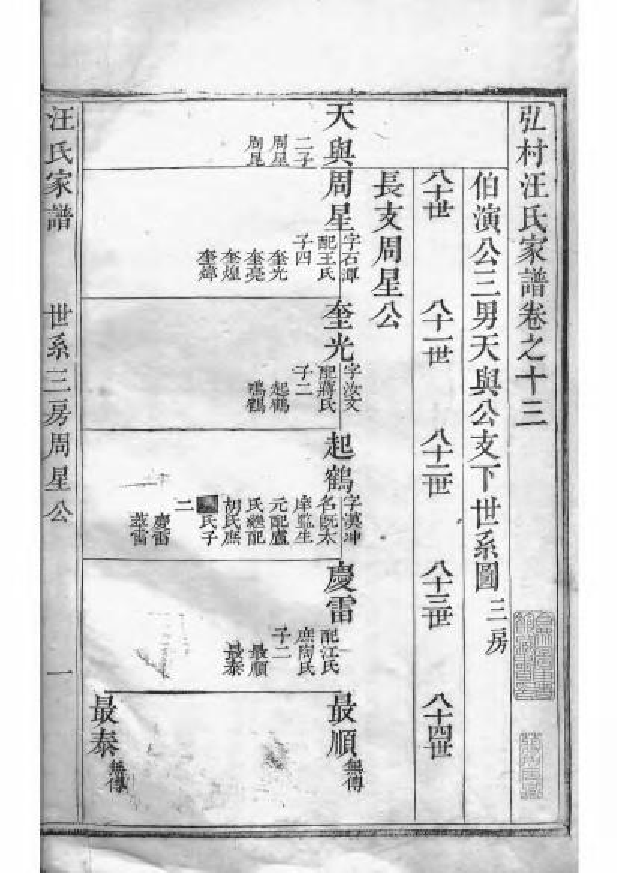 弘村汪氏家譜卷之十三
伯演公三男天與公支下世系圖 三房
八十世 八十一世 八十二世 八十三世 八十四世
長支周星公
天與
二子
周星
周昆
周星
字石潭
配王氏
子四
奎光
奎亮
奎煌
奎煒
奎光
字汝文
配蔣氏
子二
起鶴
鳴鶴
起鶴
字漢冲
名
太
庠監生
元配盧
氏繼配
胡氏庶
氏子
二
慶雷
慶雷
配江氏
庶陶氏
子二
最順
最泰
最順
無傳
最泰
無傳
汪氏家譜 世系三房周星公 一